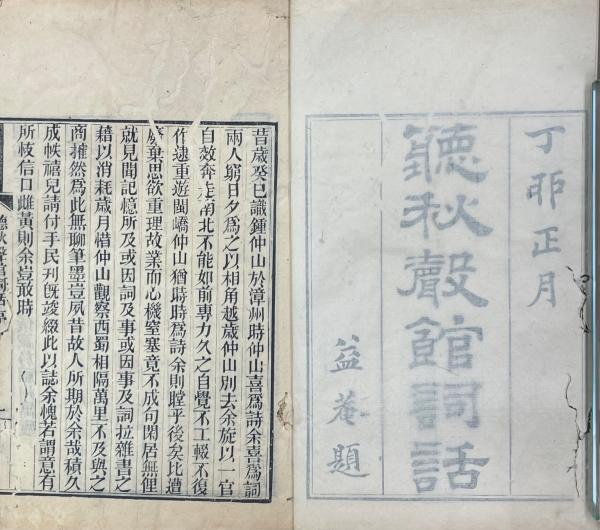 丁卯正月
聽秋聲館詞話
益菴題
昔歲癸巳識鍾仲山於漳州時仲山喜爲詩余喜爲詞
兩人窮日夕爲之以相角越歲仲山別去余旋以一官
自效奔走南北不能如前專力久之自覺不工輟不復
作逮重遊閩嶠仲山猶時時爲詩余則瞠乎後矣比遭
廢棄思欲重理故業而心機窒塞竟不成句閑居無俚
就見聞記憶所及或因詞及事或因事及詞拉雜書之
藉以消耗歲月惜仲山觀察西蜀相隔萬里不及與之
商搉然爲此無聊筆墨豈夙昔故人所期於余哉積久
成帙禧兒請付手民刋旣竣綴此以誌余愧若謂意有
所枝信口雌黃則余豈敢時
聽秋聲館詞話序
一